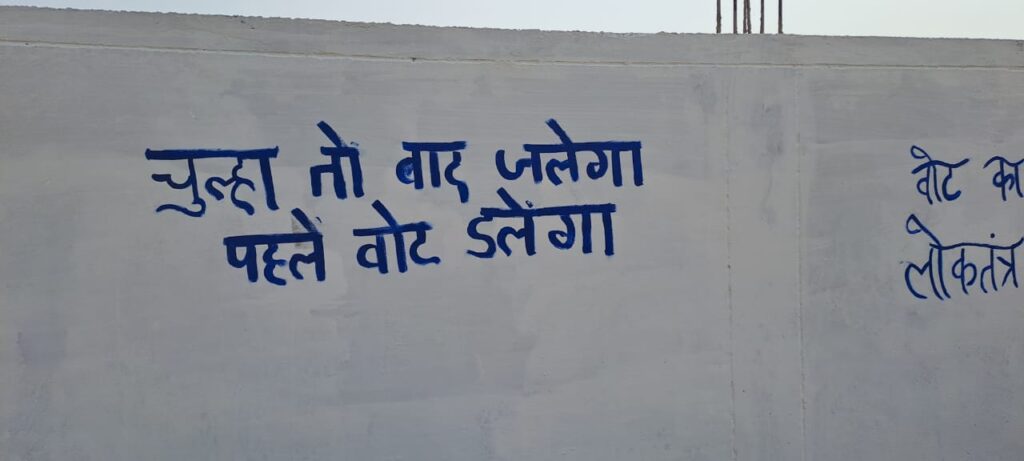 चुल्हा तो बाद जलेगा
पहलें वोट डलेंगा
वोट का
लोकतंत्र